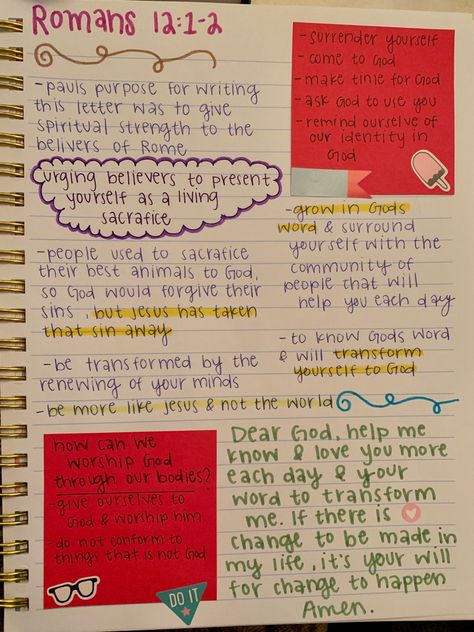 Romans 12:1-2
-pauls purpose for writing
this letter was to give
spiritual strength to the
belivers of Rome
urging believers to present
yourself as a living
sacrafice
-people used to sacrafice
their best animals to God,
so God would forgive their
sins, but Jesus has taken
that sin away
-be transformed by the
renewing of your minds
-be more like Jesus & not the world
-surrender yourself
-come to God
-make time for God
-ask God to use you
-remind ourselve of
our identity in
God
-grow in Gods
word & surround
yourself with the
community of
people that will
help you each day
-to know Gods word
& will transform
yourself to God
how can we
worship God
through our bodies?
-give ourselves to
God & worship him
-do not conform to
things that is not God
DO IT
Dear God, help me
know & love you more
each day & your
word to transform
me. If there is
change to be made in
my life, it's your will
for change to happen
Amen.